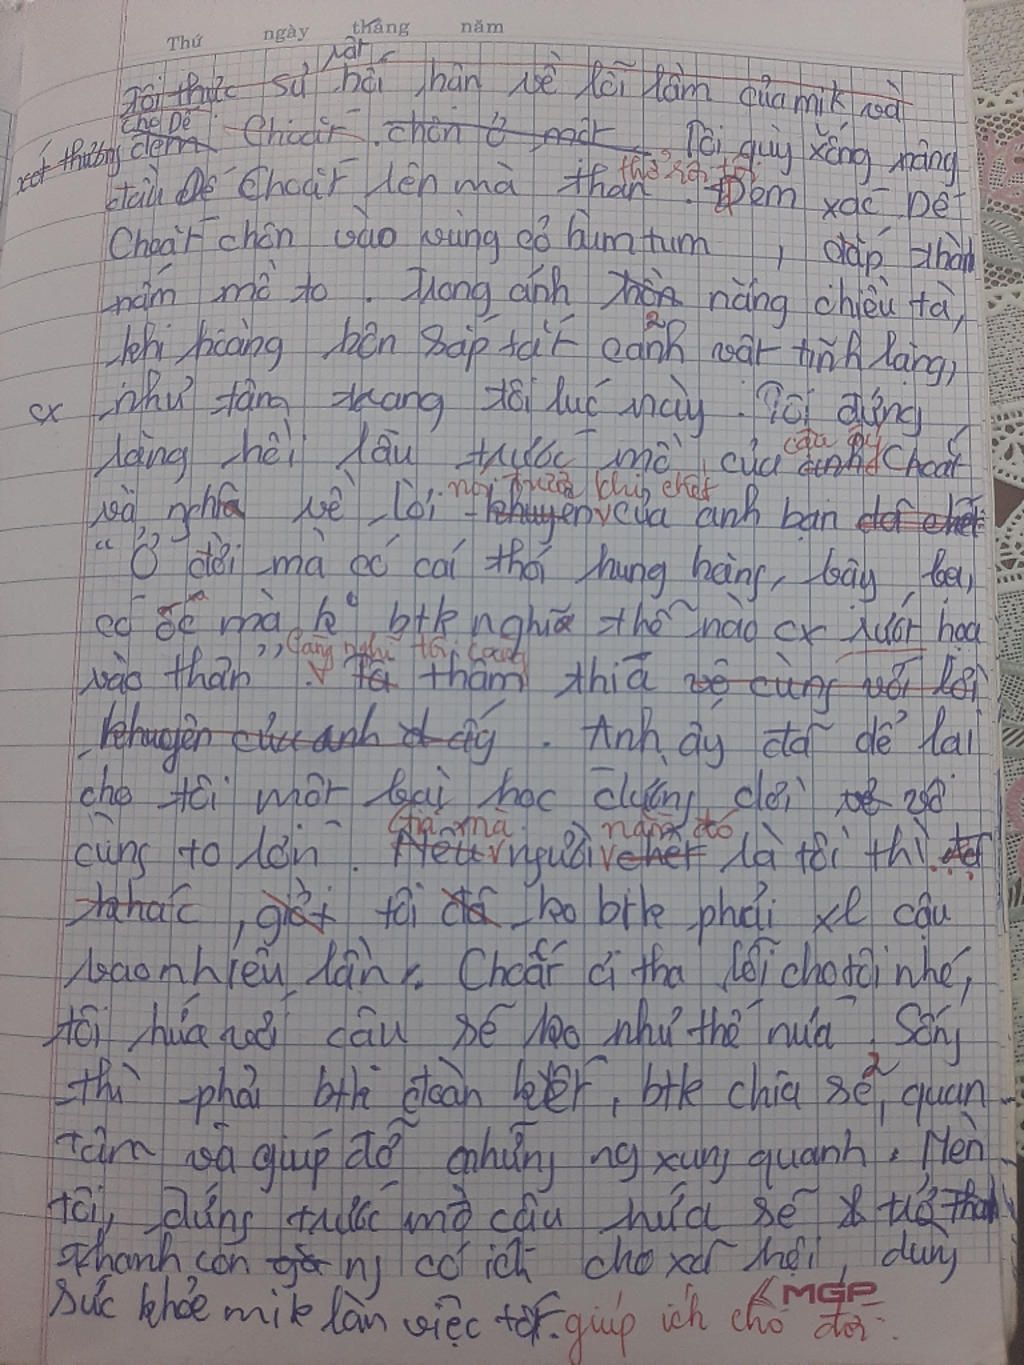 Thứ ngày tháng năm
rất
Tôi thực sự hối hận về lỗi lầm của mik và
xót thương cho Dế Choắt. chôn ở một Tôi quỳ xuống nâng
đầu Dế Choắt lên mà than thở rồi Đem xác Dế
Choắt chôn vào vùng cỏ bùm tum, đắp thành
nấm mồ to. Trong ánh nắng chiều tà,
khi hoàng hôn sắp tắt cảnh vật tĩnh lặng,
như tâm trạng tôi lúc này. Tôi đứng
lặng hồi lâu trước mồ của cậu ấy Choắt
và nghĩ về lời khuyên nói trước khi chết của anh bạn đã chết
"Ở đời mà có cái thói hung hăng, bậy bạ,
có óc mà ko btk nghĩ thế nào cx rước họa
vào thân". Càng nghĩ tôi càng thấm thía vô cùng với lời
khuyên của anh ấy. Anh ấy đã để lại
cho tôi một bài học đường đời vô
cùng to lớn. Nếu giá mà người chết nằm đó là tôi thì
khác, giờ tôi đã ko btk phải xl cậu
bao nhiêu lần. Choắt ơi tha lỗi cho tôi nhé,
tôi hứa với cậu sẽ ko như thế nữa. Sống
thì phải btk đoàn kết, btk chia sẻ, quan
tâm và giúp đỡ những ng xung quanh. Mèn
tôi, đứng trước mộ cậu hứa sẽ trở
thành con ng có ích cho xã hội, dùng
sức khỏe mik làm việc tốt. giúp ích cho đời.
MGP